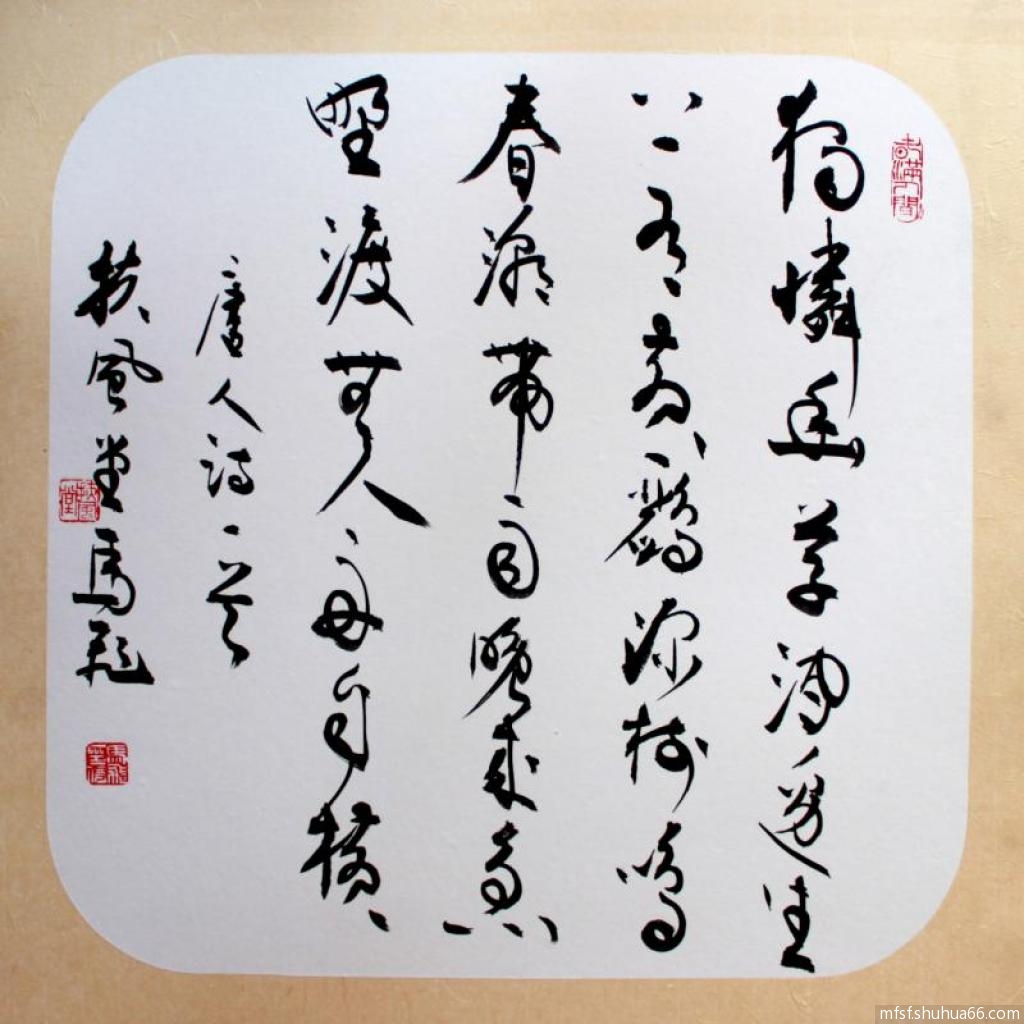 獨憐幽草澗邊生
上有黄鸝深樹鳴
春潮帶雨晚來急
野渡無人舟自橫
唐人詩一首
扶風堂馬飛
扶風堂
mfsf.shuhua66.com